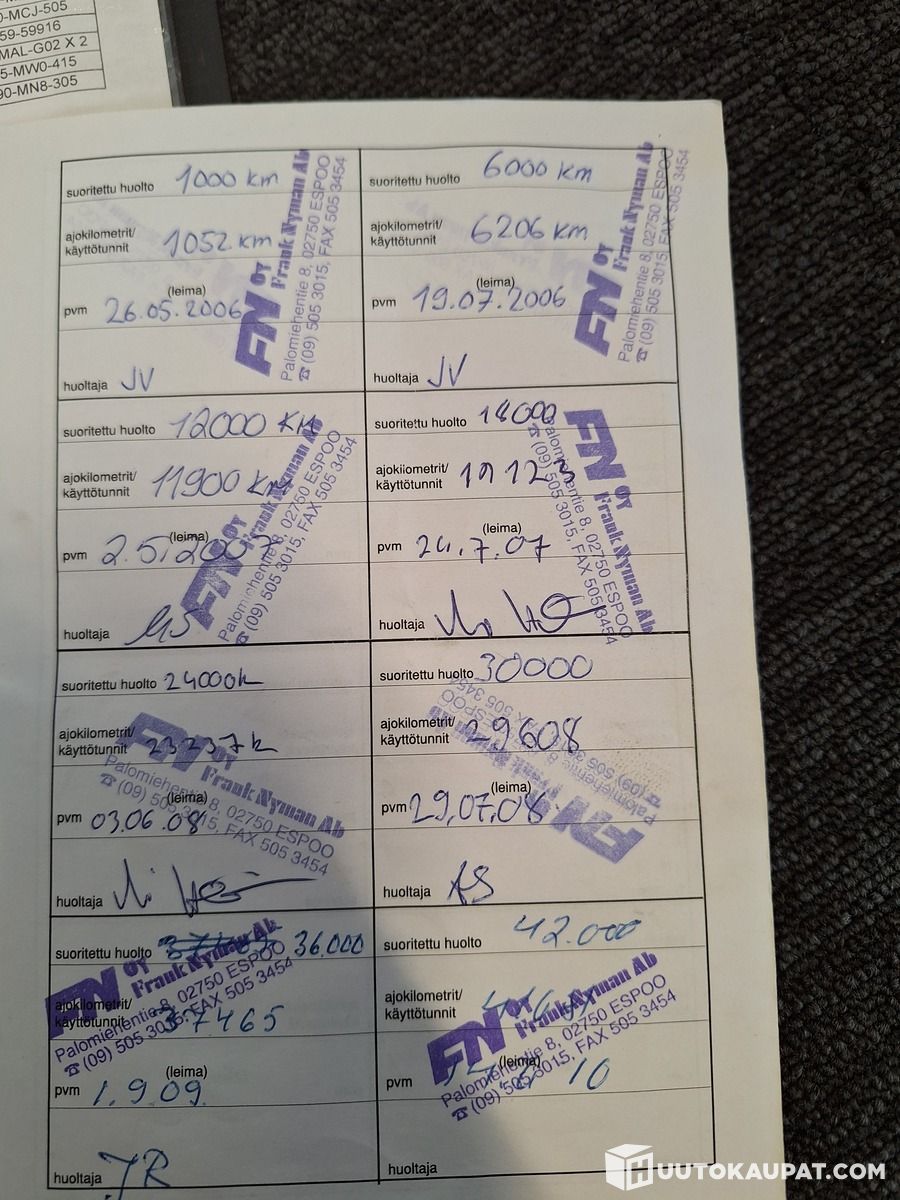 0-MCJ-505
59-59916
MAL-G02 X 2
5-MW0-415
90-MN8-305
suoritettu huolto 1000 km
ajokilometrit/
käyttötunnit 1052 km
(leima)
pvm 26.05.2006
huoltaja JV
FN OY
Frank Nyman Ab
Palomiehentie 8, 02750 ESPOO
☎ (09) 505 3015, FAX 505 3454
suoritettu huolto 6000 km
ajokilometrit/
käyttötunnit 6206 km
(leima)
pvm 19.07.2006
huoltaja JV
FN OY
Frank Nyman Ab
Palomiehentie 8, 02750 ESPOO
☎ (09) 505 3015, FAX 505 3454
suoritettu huolto 12000 KM
ajokilometrit/
käyttötunnit 11900 km
(leima)
pvm 2.5.2007
huoltaja
FN OY
Frank Nyman Ab
Palomiehentie 8, 02750 ESPOO
☎ (09) 505 3015, FAX 505 3454
suoritettu huolto 18000
ajokilometrit/
käyttötunnit 19123
(leima)
pvm 24.7.07
huoltaja
FN OY
Frank Nyman Ab
Palomiehentie 8, 02750 ESPOO
☎ (09) 505 3015, FAX 505 3454
suoritettu huolto 24000k
ajokilometrit/
käyttötunnit 23237k
(leima)
pvm 03.06.08
huoltaja
FN OY
Frank Nyman Ab
Palomiehentie 8, 02750 ESPOO
☎ (09) 505 3015, FAX 505 3454
suoritettu huolto 30000
ajokilometrit/
käyttötunnit 29608
(leima)
pvm 29.07.08
huoltaja AS
FN OY
Frank Nyman Ab
Palomiehentie 8, 02750 ESPOO
☎ (09) 505 3015, FAX 505 3454
suoritettu huolto 36.000
ajokilometrit/
käyttötunnit 37465
(leima)
pvm 1.9.09
huoltaja JR
FN OY
Frank Nyman Ab
Palomiehentie 8, 02750 ESPOO
☎ (09) 505 3015, FAX 505 3454
suoritettu huolto 42.000
ajokilometrit/
käyttötunnit
(leima)
pvm 10
huoltaja
FN OY
Frank Nyman Ab
Palomiehentie 8, 02750 ESPOO
☎ (09) 505 3015, FAX 505 3454
HUUTOKAUPAT.COM